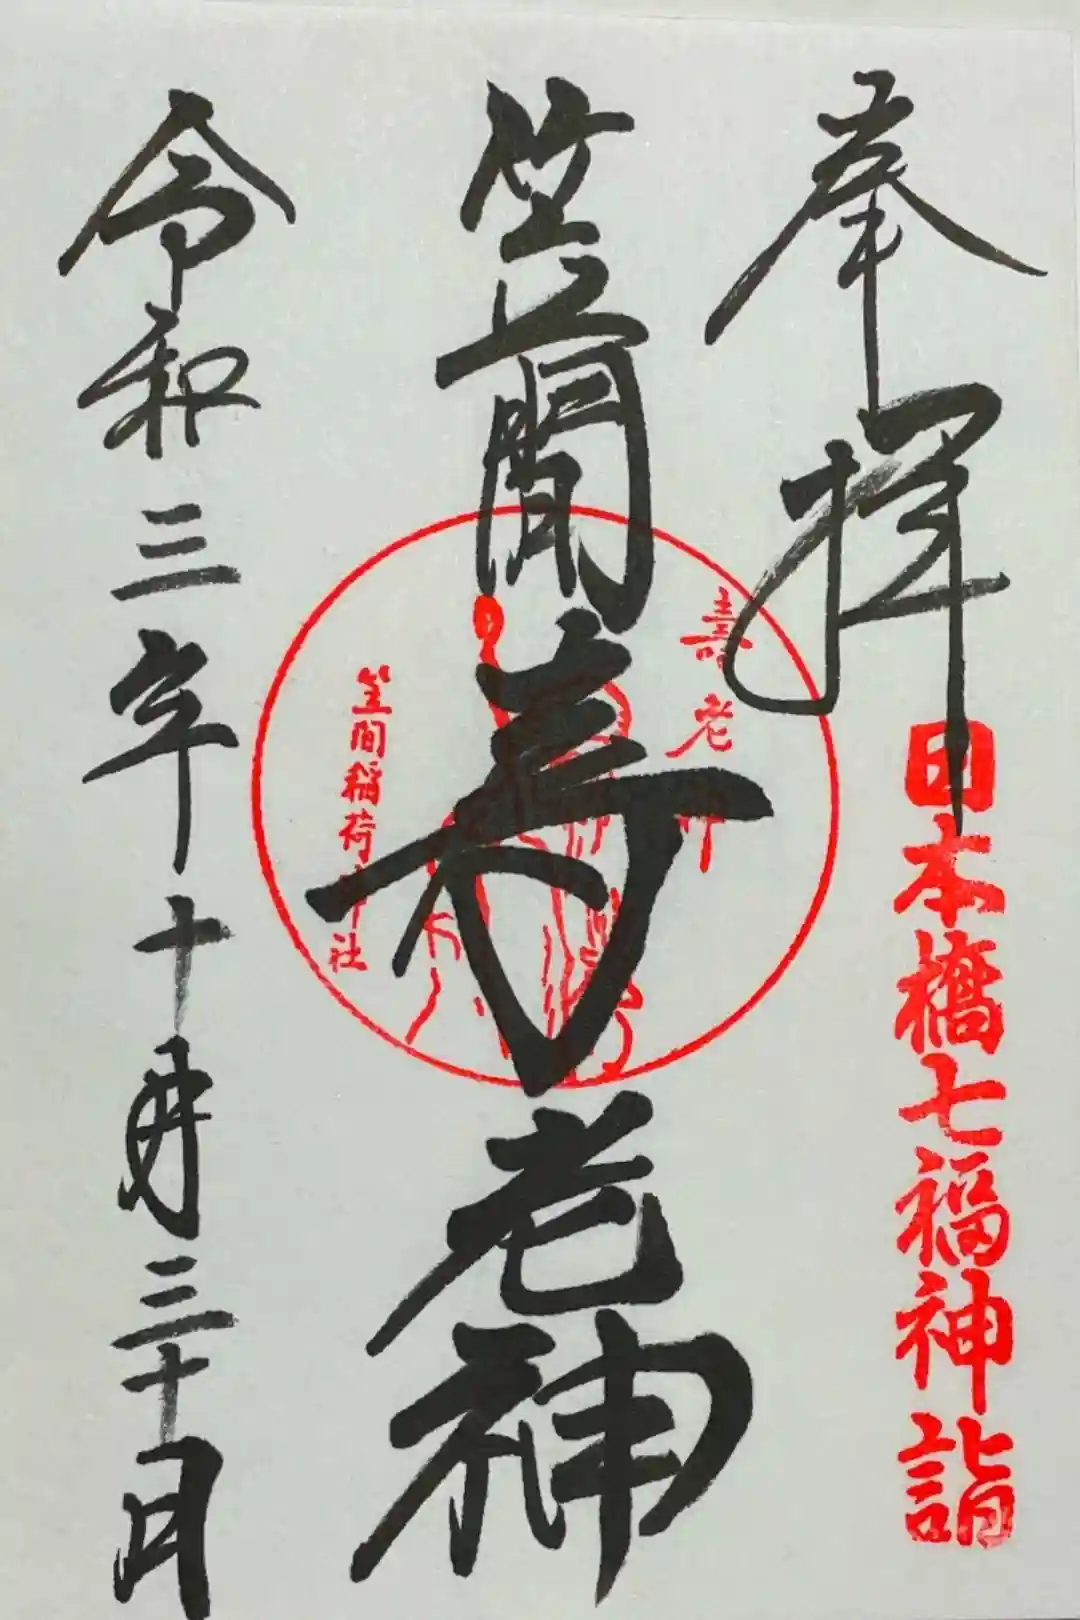 奉拝
日本橋七福神詣
笠間
寿老神
壽老神
笠間稲荷神社
令和三年十月三十日